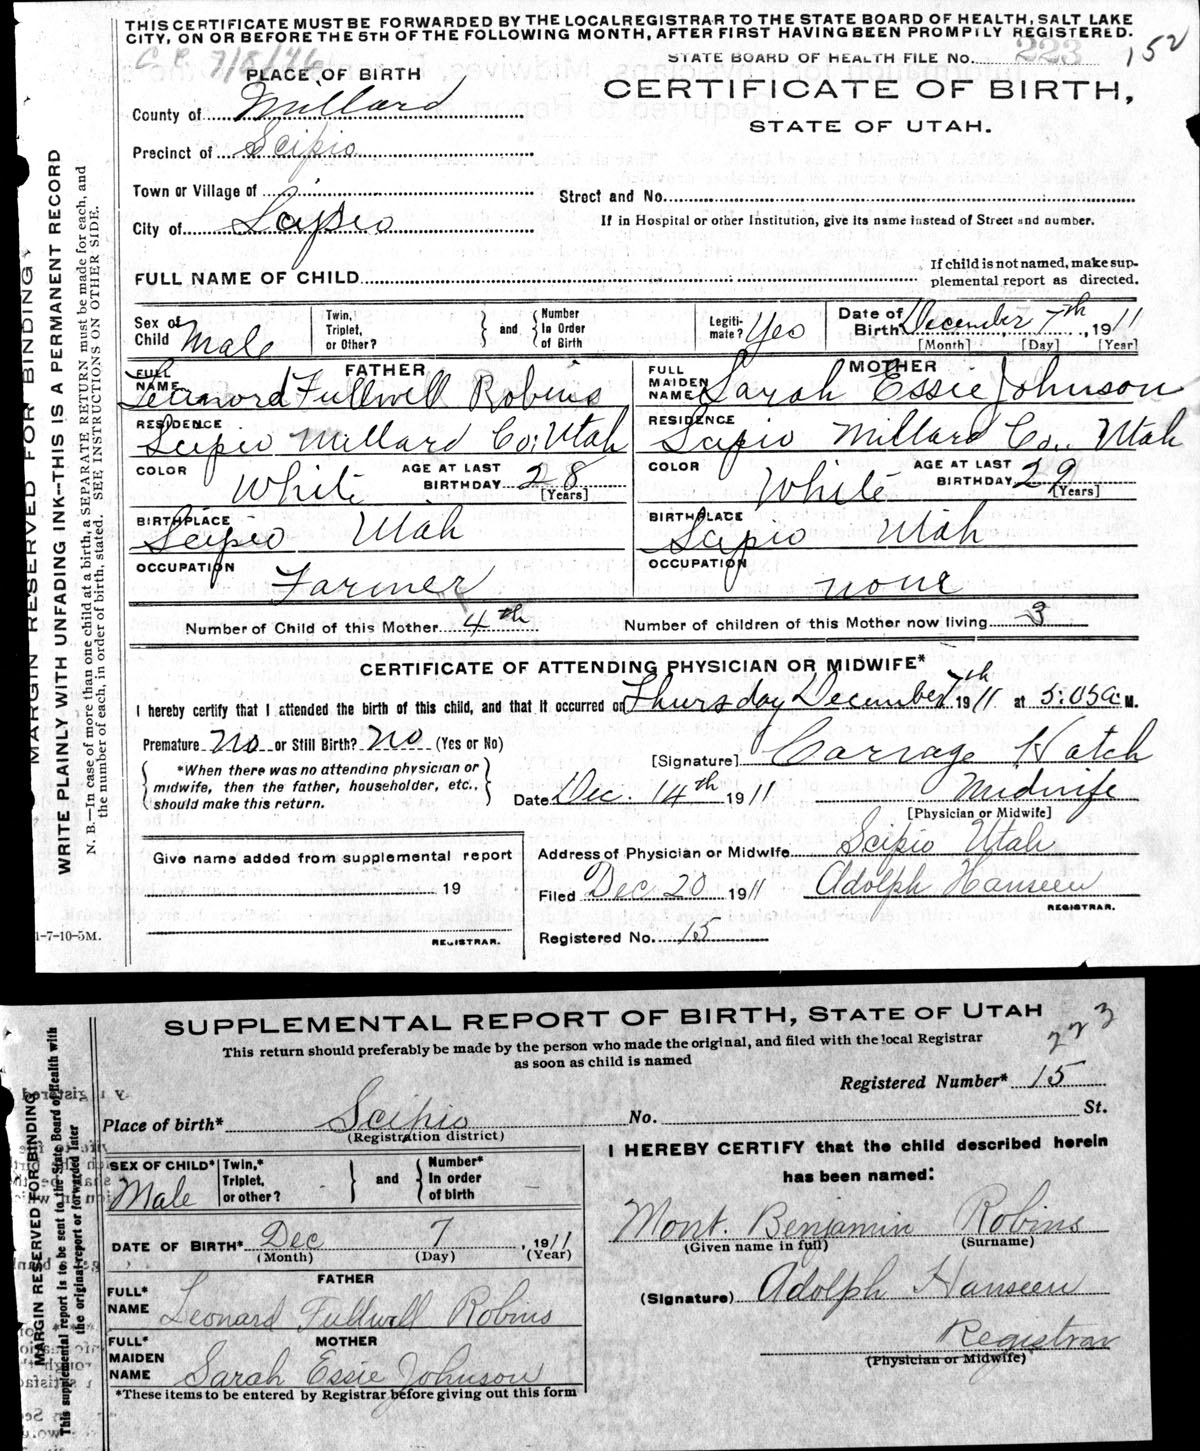 THIS CERTIFICATE MUST BE FORWARDED BY THE LOCAL REGISTRAR TO THE STATE BOARD OF HEALTH, SALT LAKE
CITY, ON OR BEFORE THE 5TH OF THE FOLLOWING MONTH, AFTER FIRST HAVING BEEN PROMPILY REGISTERED.
7/8/46
STATE BOARD OF HEALTH FILE No. 223 152
PLACE OF BIRTH
CERTIFICATE OF BIRTH,
STATE OF UTAH.
County of Millard
Precinct of Scipio
Town or Village of
Street and No.
City of Scipio
If in Hospital or other Institution, give its name instead of Street and number.
FULL NAME OF CHILD
If child is not named, make sup-
plemental report as directed.
Sex of Child Male
Twin, Triplet, or Other?
and
Number In Order of Birth
Legiti-mate? Yes
Date of Birth December 7th, 1911
[Month] [Day] [Year]
FATHER
FULL NAME Leanord Fullwell Robins
MOTHER
FULL MAIDEN NAME Sarah Essie Johnson
RESIDENCE Scipio Millard Co. Utah
RESIDENCE Scipio Millard Co. Utah
COLOR White
AGE AT LAST BIRTHDAY 28 [Years]
COLOR White
AGE AT LAST BIRTHDAY 29 [Years]
BIRTHPLACE Scipio Utah
BIRTHPLACE Scipio Utah
OCCUPATION Farmer
OCCUPATION none
Number of Child of this Mother 4th
Number of children of this Mother now living 3
CERTIFICATE OF ATTENDING PHYSICIAN OR MIDWIFE*
I hereby certify that I attended the birth of this child, and that it occurred on Thursday December 7th 1911 at 5:05 a M.
Premature no or Still Birth? no (Yes or No)
[Signature] Carrage Hatch
*When there was no attending physician or
midwife, then the father, householder, etc.,
should make this return.
Date Dec. 14th 1911
Midwife
[Physician or Midwife]
Give name added from supplemental report
19
REGISTRAR.
Address of Physician or Midwife Scipio Utah
Filed Dec 20 1911 Adolph Hanseen
REGISTRAR.
Registered No. 15
1-7-10-5M.
MARGIN RESERVED FOR BINDING
WRITE PLAINLY WITH UNFADING INK—THIS IS A PERMANENT RECORD
N. B.—In case of more than one child at a birth, a SEPARATE RETURN must be made for each, and
the number of each, in order of birth, stated. SEE INSTRUCTIONS ON OTHER SIDE.
SUPPLEMENTAL REPORT OF BIRTH, STATE OF UTAH
This return should preferably be made by the person who made the original, and filed with the local Registrar
as soon as child is named
223
Registered Number* 15
Place of birth* Scipio No. St.
(Registration district)
SEX OF CHILD* Male
Twin,* Triplet, or other?
and
Number* In order of birth
DATE OF BIRTH* Dec 7, 1911
(Month) (Day) (Year)
FATHER
FULL* NAME Leonard Fullwell Robins
MOTHER
FULL* MAIDEN NAME Sarah Essie Johnson
*These items to be entered by Registrar before giving out this form
I HEREBY CERTIFY that the child described herein
has been named:
Mont. Benjamin Robins
(Given name in full) (Surname)
(Signature) Adolph Hanseen
Registrar
(Physician or Midwife)
MARGIN RESERVED FOR BINDING
This supplemental report is to be sent to the State Board of Health with
the original report or forwarded later